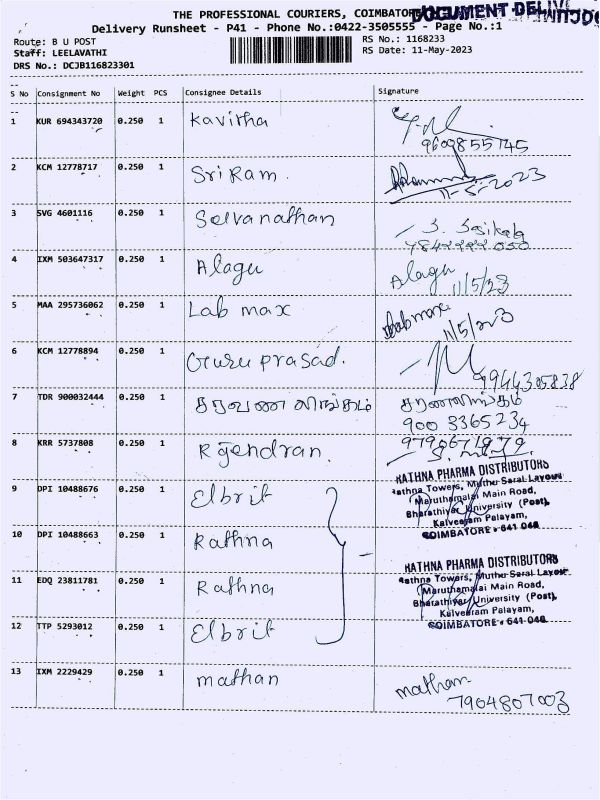 THE PROFESSIONAL COURIERS, COIMBATORE
Delivery Runsheet - P41 - Phone No.:0422-3505555 - Page No.:1
Route: B U POST
RS No.: 1168233
Staff: LEELAVATHI
RS Date: 11-May-2023
DRS No.: DCJB116823301
S No Consignment No Weight PCS Consignee Details Signature
1 KUR 694343720 0.250 1 Kavitha
9609855145
2 KCM 12778717 0.250 1 Sri Ram.
11-5-2023
3 SVG 4601116 0.250 1 Selvanathan S. Sasikala
4 IXM 503647317 0.250 1 Alagu Alagu
11/5/23
5 MAA 295736062 0.250 1 Lab max Labmax
11/5/23
6 KCM 12778894 0.250 1 Guru prasad.
9944305838
7 TDR 900032444 0.250 1 சரவண லிங்கம்
900 3365234
8 KRR 5737808 0.250 1 Rajendran.
RATHNA PHARMA DISTRIBUTORS
Rathna Towers, Muthu Saral Layout
Maruthamalai Main Road,
Bharathiyar University (Post),
Kalveeram Palayam,
COIMBATORE - 641 046
9 DPI 10488676 0.250 1 Elbrit
10 DPI 10488663 0.250 1 Rathna
RATHNA PHARMA DISTRIBUTORS
Rathna Towers, Muthu Saral Layout
Maruthamalai Main Road,
Bharathiyar University (Post),
Kalveeram Palayam,
COIMBATORE - 641 046
11 EDQ 23811781 0.250 1 Rathna
12 TTP 5293012 0.250 1 Elbrit
13 IXM 2229429 0.250 1 mathan mathan
7904807003